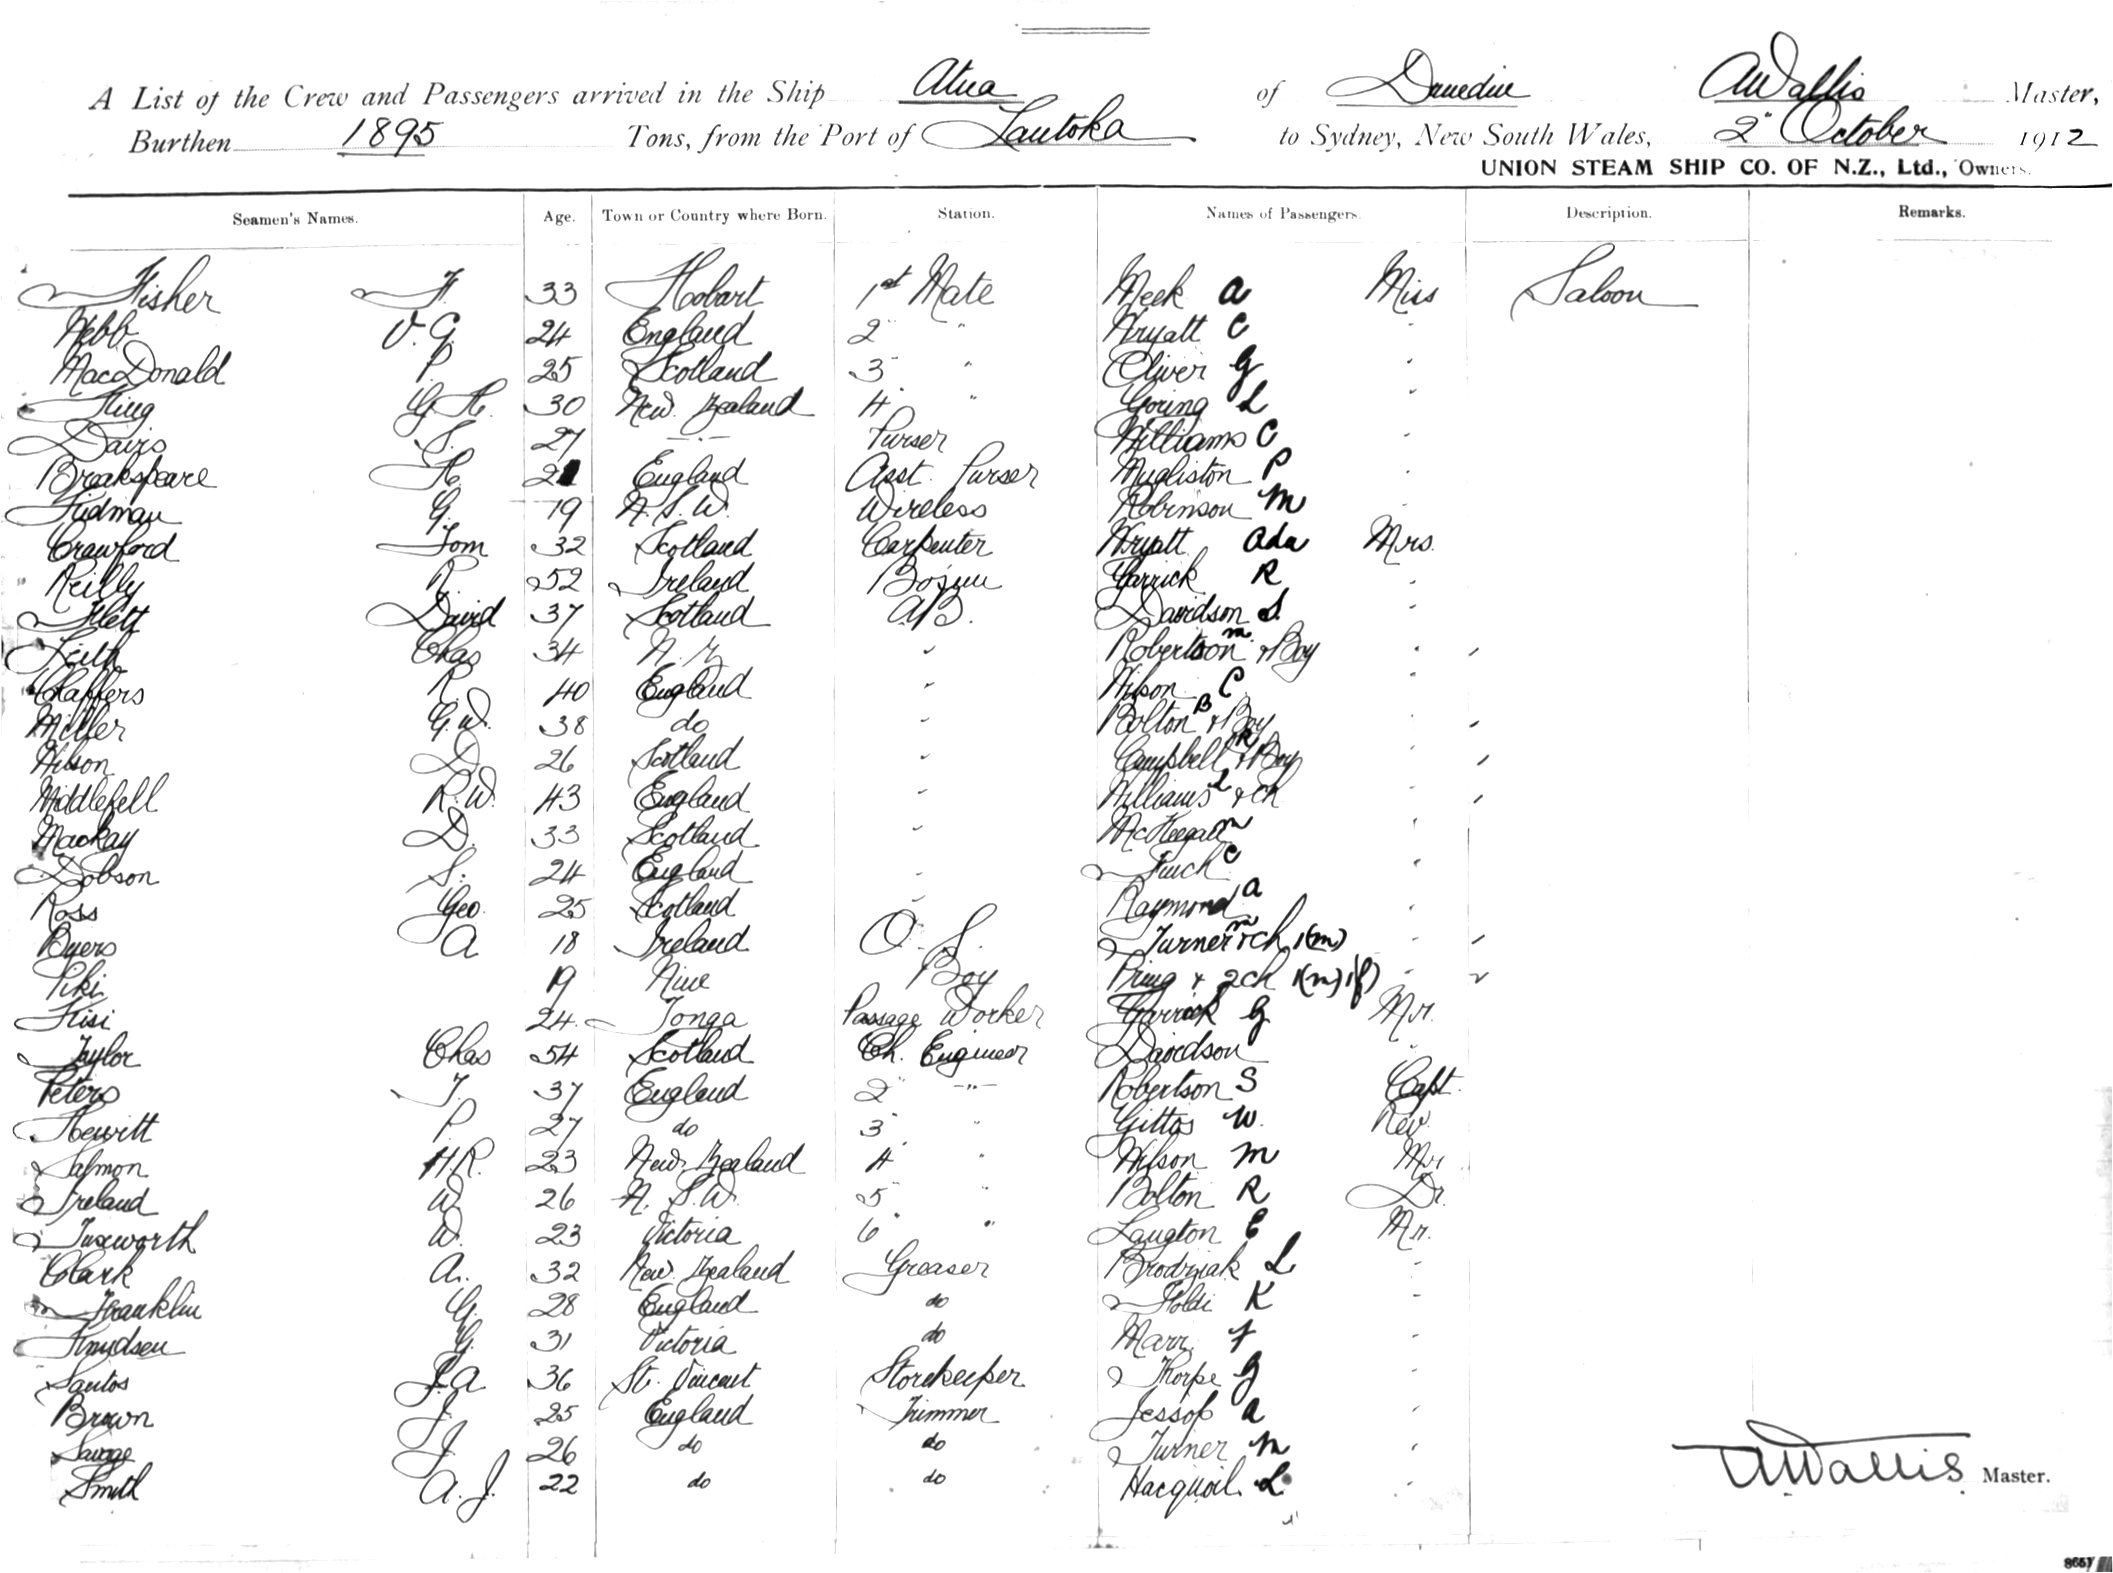 A List of the Crew and Passengers arrived in the Ship Atua of Dunedin AWallis Master,
Burthen 1895 Tons, from the Port of Lautoka to Sydney, New South Wales, 2" October 1912
UNION STEAM SHIP CO. OF N.Z., Ltd., Owners.
Seamen's Names. Age. Town or Country where Born. Station. Names of Passengers. Description. Remarks.
Fisher F. 33 Hobart 1st Mate Meek A Miss Saloon
Webb V. G. 24 England 2 " Wryatt C "
MacDonald P 25 Scotland 3 " Oliver G "
King G H. 30 New Zealand 4 " Goring L "
Davis S. 27 -"- Purser Williams C "
Breakspeare H. England Asst. Purser Mugliston P "
Tidman G. 19 N.S.W. Wireless Robinson M "
Crawford Tom 32 Scotland Carpenter Wryatt Ada Mrs.
Reilly R. 52 Ireland Bosun Garrick R "
Flett David 37 Scotland A.B. Davidson S. "
Leith Chas 34 N.Z. " Robertson M. & Boy "
Chaffers R. 40 England " Wilson C "
Miller G.W. 38 do " Bolton B & Boy "
Wilson D 26 Scotland " Campbell R & Boy "
Middlefell R.W. 43 England " Williams L & Ch "
Mackay D. 33 Scotland " McKeegan M "
Dobson S. 24 England " Finch C "
Ross Geo. 25 Scotland " Raymond A "
Byers A 18 Ireland O. S. Turner M & Ch 1(m) "
Piki 19 Niue Boy Pring & 2 Ch 1(m) 1(f) "
Kisi 24 Tonga Passage Worker Garrick G Mr.
Taylor Chas 54 Scotland Ch. Engineer Davidson "
Peters T. 37 England 2" -"- Robertson S Capt.
Hewitt P 27 do 3 " Gittos W. Rev.
Salmon H.R. 23 New Zealand 4 " Wilson M Mr.
Ireland W. 26 N.S.W. 5 " Bolton R Dr.
Tuxworth W. 23 Victoria 6" " Langton E Mr.
Clark A. 32 New Zealand Greaser Brodziak L "
Franklin G. 28 England do Holdi K "
Knudsen G. 31 Victoria do Marr F "
Santos J.A 36 St. Vincent Storekeeper Thorpe G "
Brown J. 25 England Trimmer Jessop A "
Savage J. 26 do do Turner M "
Smith A. J. 22 do do Hacquoil L "
AWallis Master.